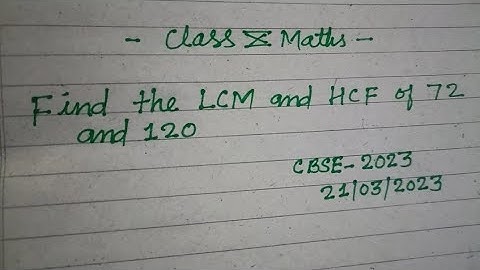 - Class X Maths -
Find the LCM and HCF of 72
and 120
CBSE - 2023
21/03/2023